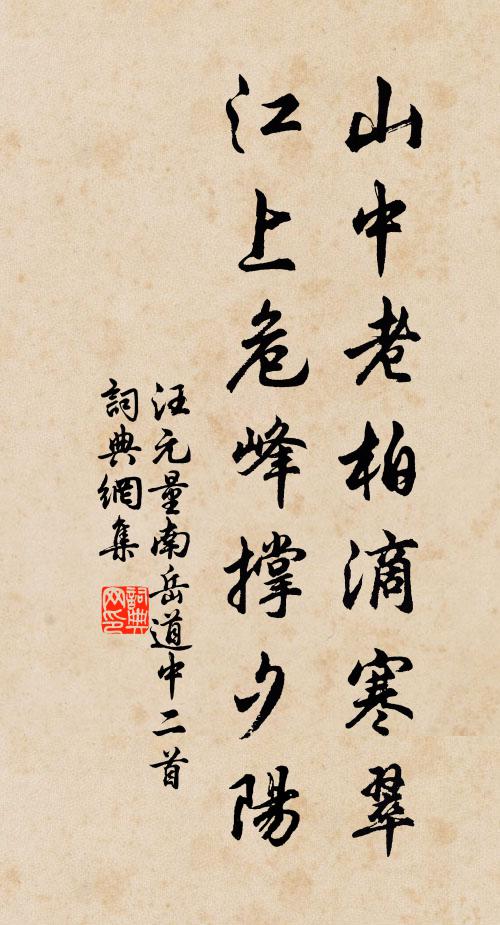 山中老柏滴寒翠
江上危峰撐夕陽
汪元量南岳道中二首
詞典網集
詞典
网印